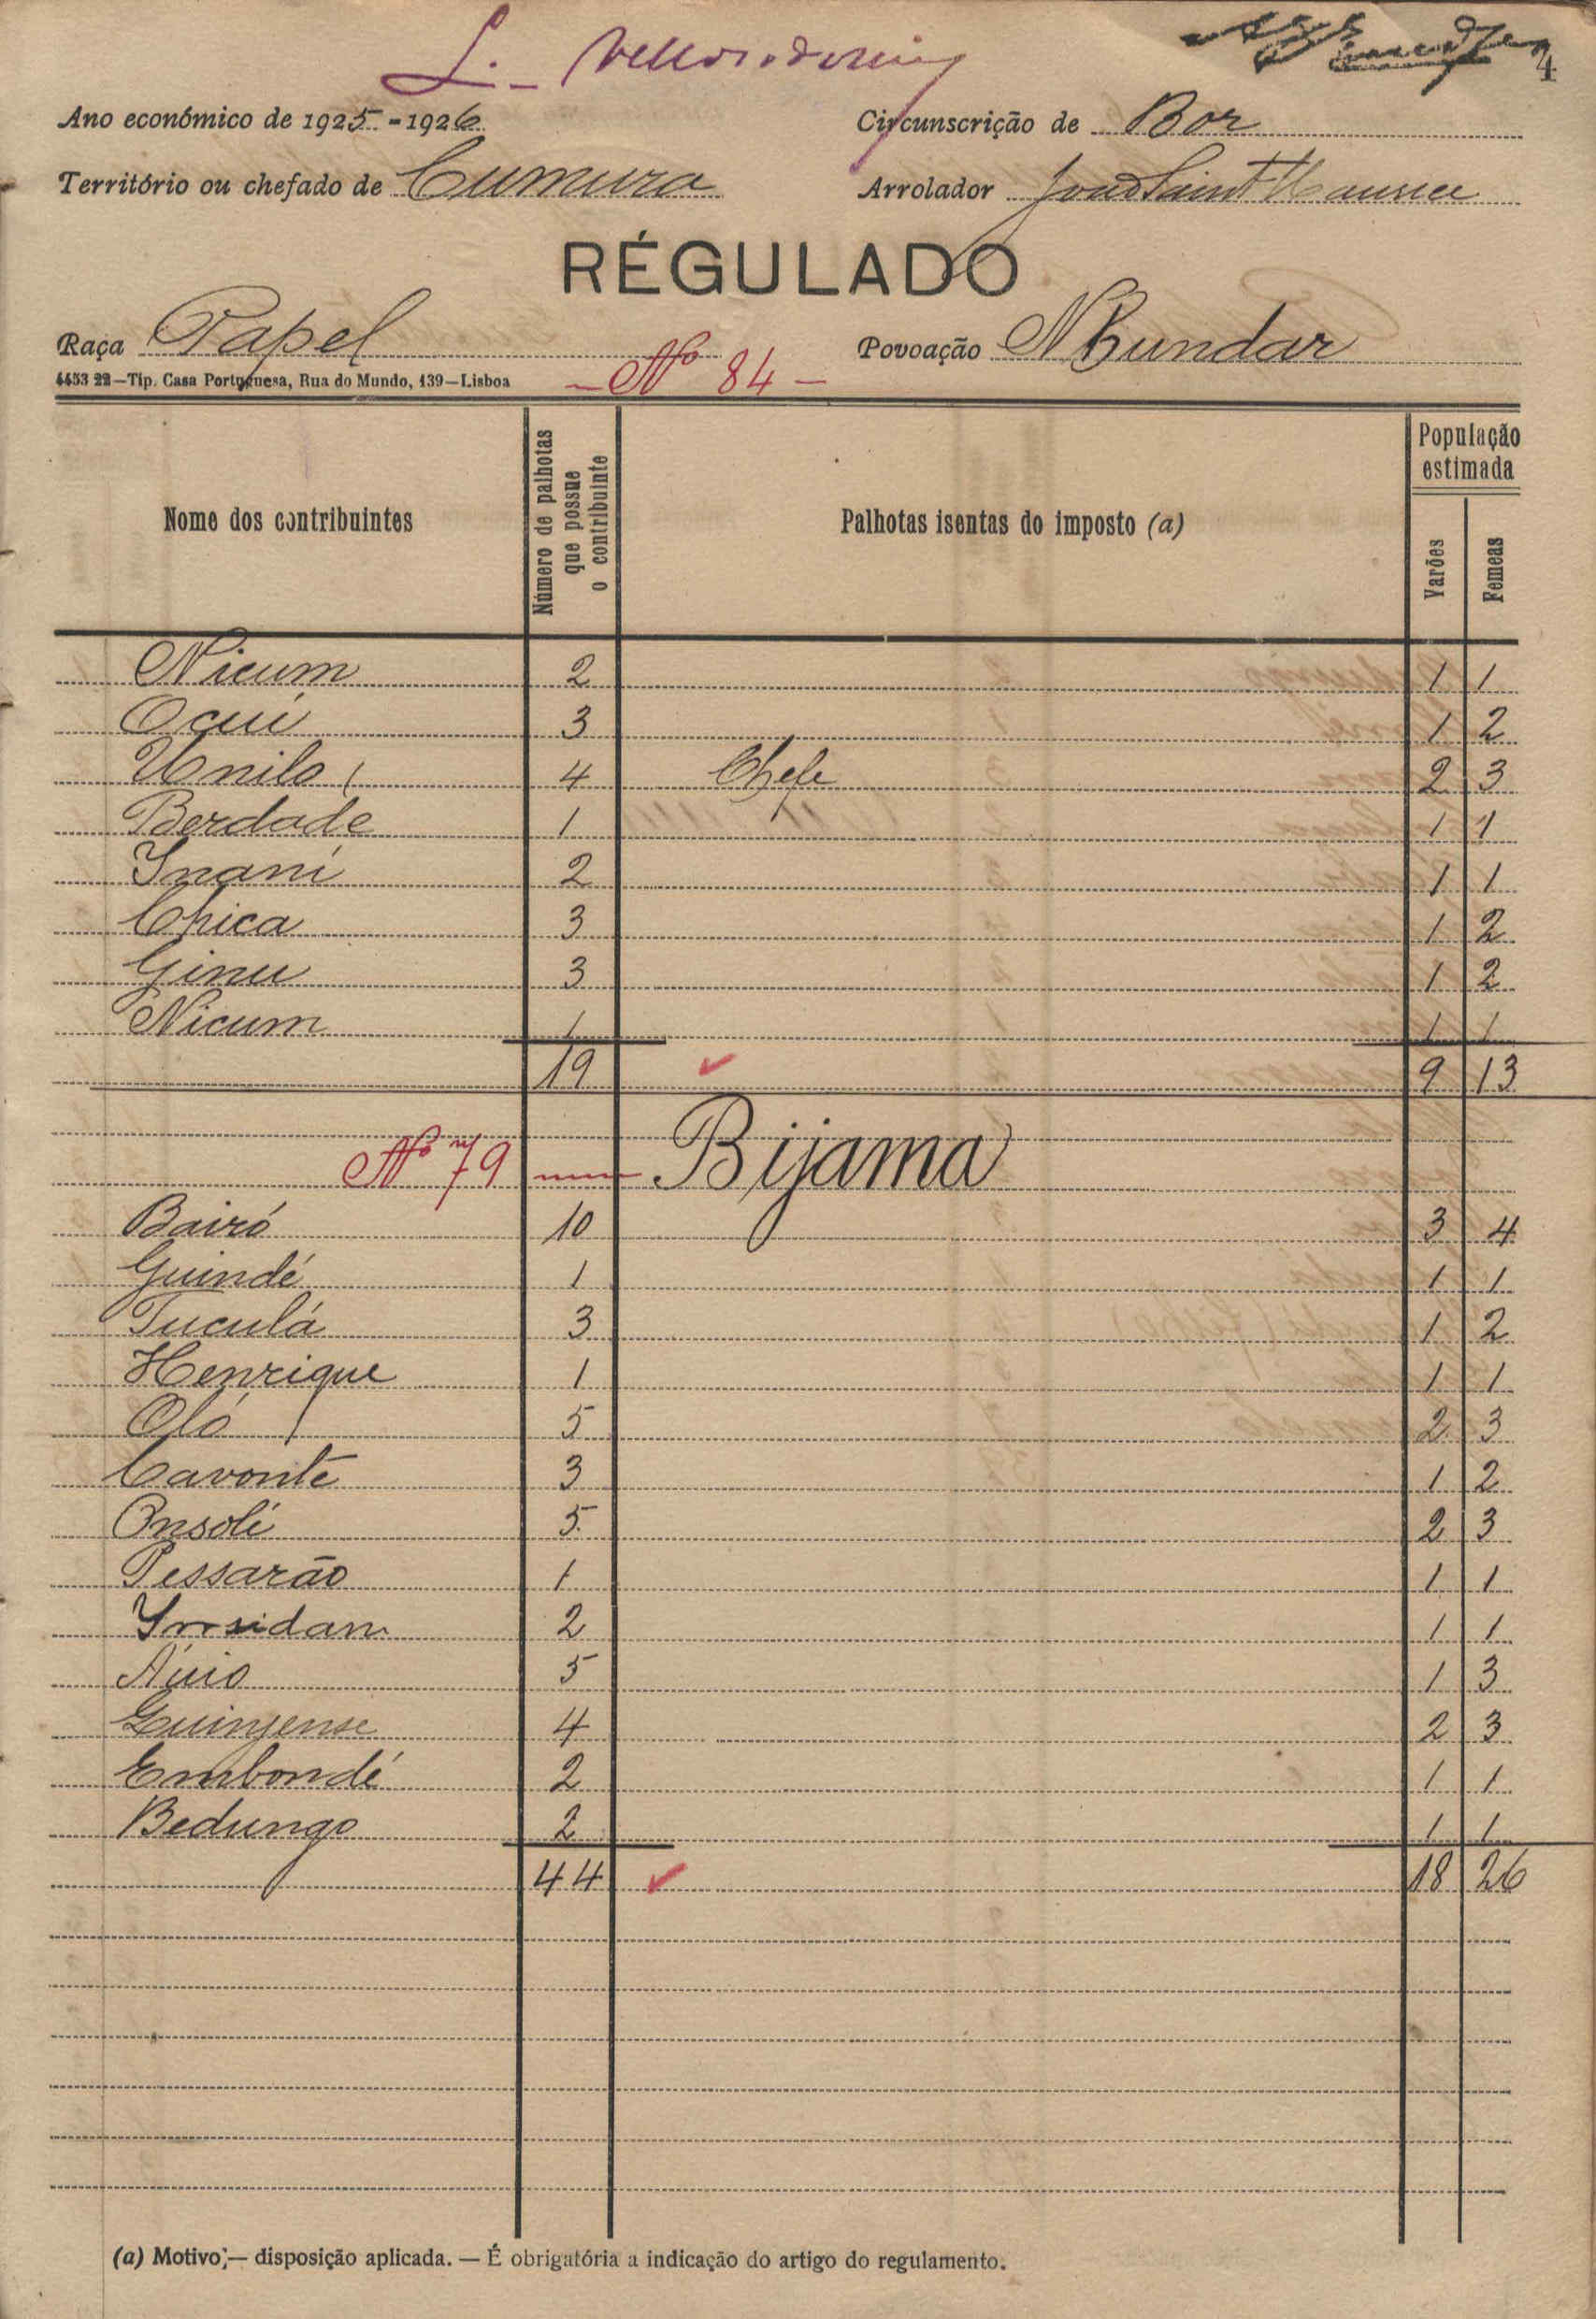 4
Ano económico de 1925-1926 Circunscrição de Bor
Território ou chefado de Cumura Arrolador
RÉGULADO
Raça Papel Povoação
4453 22—Tip. Casa Portuguesa, Rua do Mundo, 139—Lisboa — Nº 84 —
Nome dos contribuintes Número de palhotas que possue o contribuinte Palhotas isentas do imposto (a) População estimada Varões Femeas
Nicum 2 1 1
Ocuí 3 1 2
4 Chefe 2 3
Berdade 1 1 1
Inaní 2 1 1
Chica 3 1 2
Ginu 3 1 2
Nicum 1 1 1
19 9 13
Nº 79 Bijama
Bairó 10 3 4
Guindé 1 1 1
Tuculá 3 1 2
Henrique 1 1 1
Oló 5 2 3
Cavonte 3 1 2
Onsolé 5 2 3
Pessarão 1 1 1
2 1 1
5 1 3
4 2 3
Embondé 2 1 1
Bedungo 2 1 1
44 18 26
(a) Motivo;— disposição aplicada. — É obrigatória a indicação do artigo do regulamento.